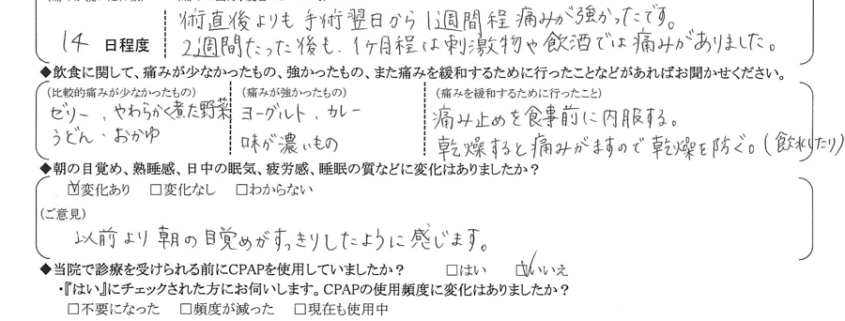 術直後よりも手術翌日から1週間程痛みが強かったです。
14 日程度
2週間たった後も、1ヶ月程は刺激物や飲酒では痛みがありました。
◆飲食に関して、痛みが少なかったもの、強かったもの、また痛みを緩和するために行ったことなどがあればお聞かせください。
(比較的痛みが少なかったもの) (痛みが強かったもの) (痛みを緩和するために行ったこと)
ゼリー、やわらかく煮た野菜 ヨーグルト、カレー 痛み止めを食事前に内服する。
うどん・おかゆ 味が濃いもの 乾燥すると痛みがますので乾燥を防ぐ。(飲水したり)
◆朝の目覚め、熟睡感、日中の眠気、疲労感、睡眠の質などに変化はありましたか?
☑変化あり □変化なし □わからない
(ご意見)
以前より朝の目覚めがすっきりしたように感じます。
◆当院で診療を受けられる前にCPAPを使用していましたか? □はい ☑いいえ
・『はい』にチェックされた方にお伺いします。CPAPの使用頻度に変化はありましたか?
□不要になった □頻度が減った □現在も使用中